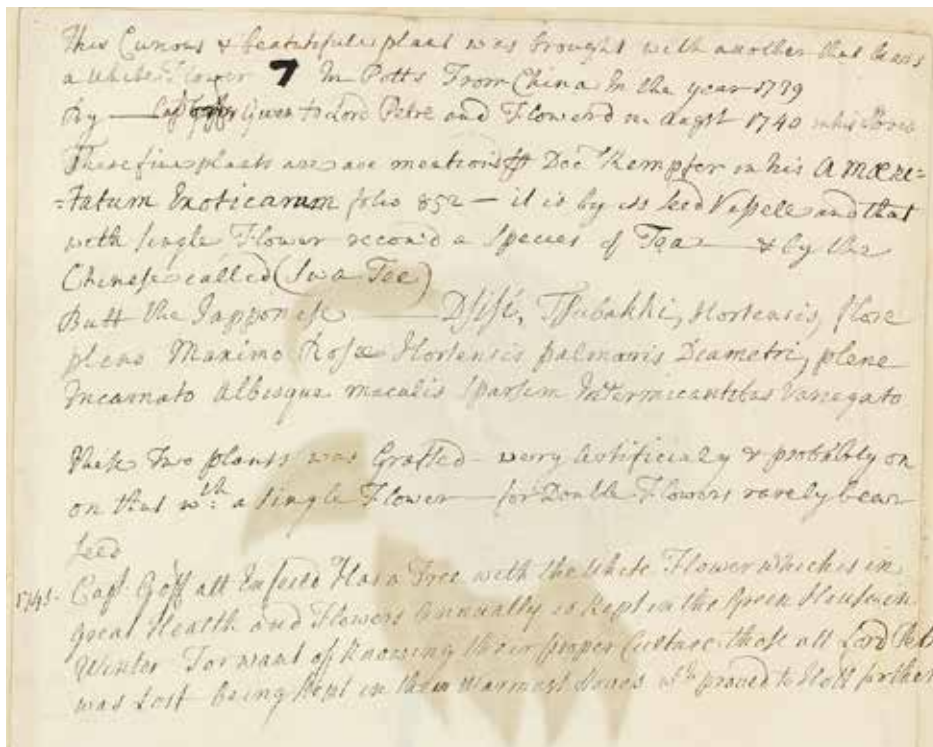 This Curious & beatitifule plant was brought with another that bears
a White Flower 7 In Potts From China In the year 1739
By — Capt Goff Given to Lord Petre and Flowerd in Augst 1740 in his Stoves
These fine plants are mentiond Docr Kempfer in his Amœni=
=tatum Exoticarum folio 852 — it is by its seed Vessele and that
with single Flower recond a Species of Tea — & by the
Chinese called (Swa Tee)
Butt the Japponese — Dsisi, Tsubakki, Hortensis, flore
pleno Maximo Rosæ Hortensis palmaris Diametri, plene
Incarnato Albisque maculis Sparsim Intermicantibus Variegato
These Two plants was Grafted very Artificialy & probibly on
on that wth a single Flower — for Double Flowers rarely bear
seed
1745. Capt Goff att Enfeild Has a Tree with the White Flower which is in
great Health and Flowers Annually is Kept in the Green House in
Winter For want of Knowing their proper Culture those att Lord
was Lost being Kept in their Warmest Stoves wch proved to Hott for them